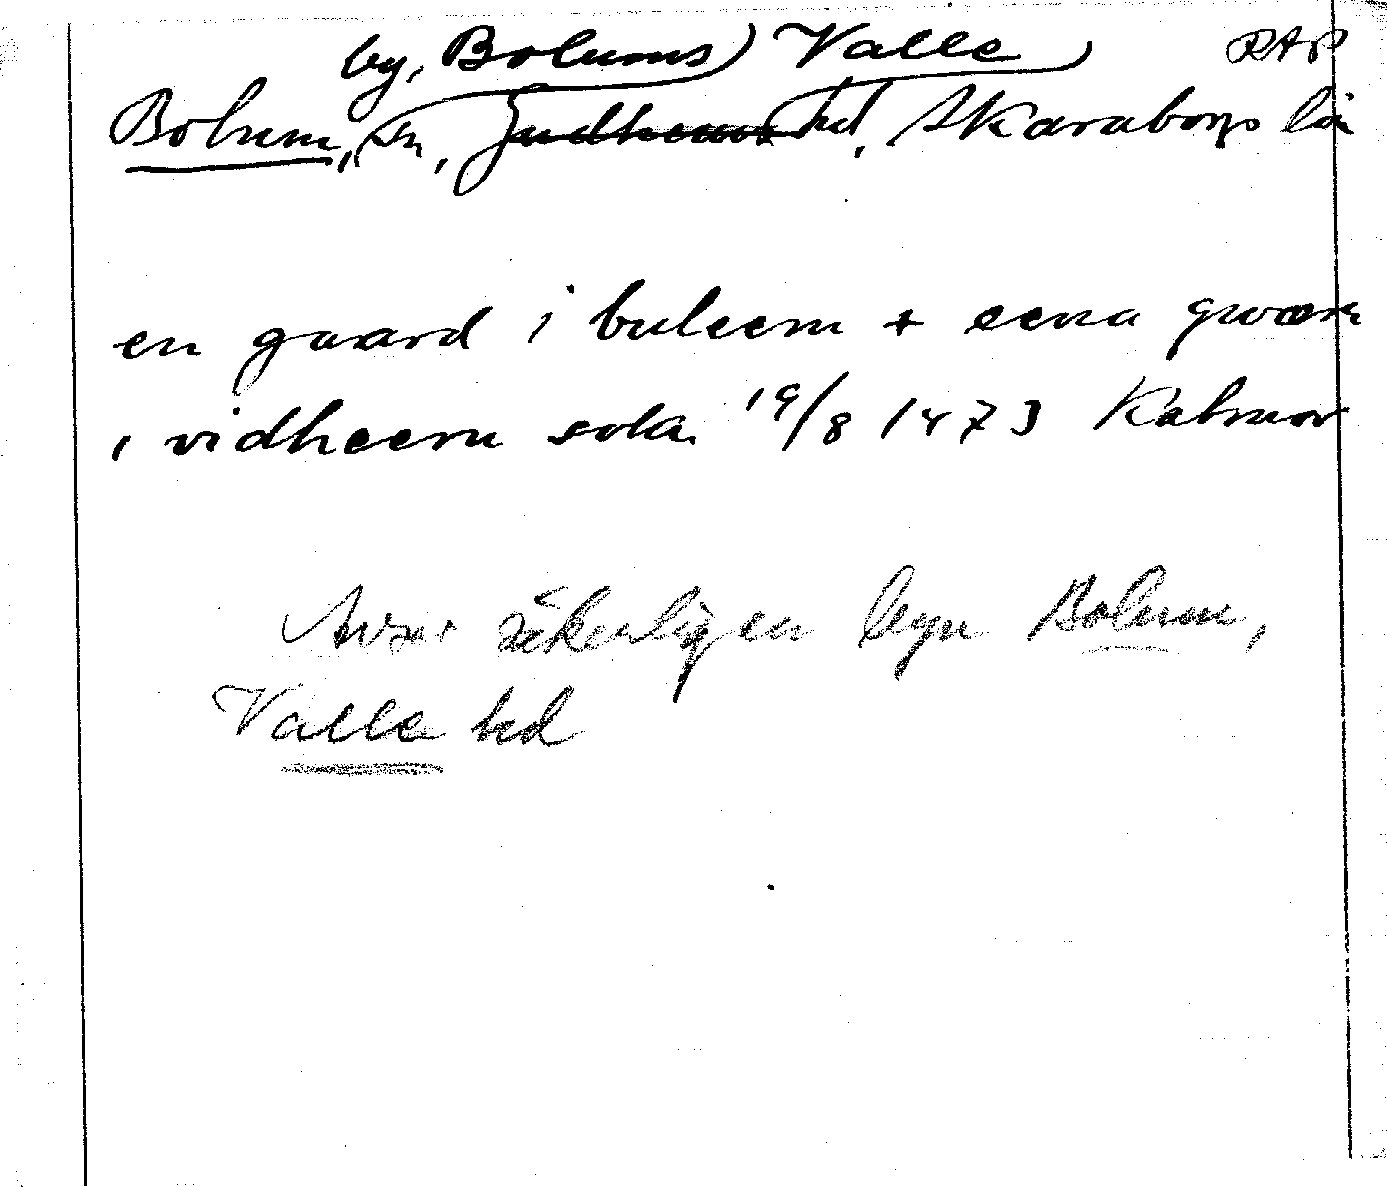 by, Bolums Valle RAP
Bolum, sn, Gudhems hd, Skaraborgs län
en gaard i buleem + eena qwærn
i vidheem sokn 19/8 1473 Kalmar
Avser säkerligen byn Bolum,
Valle hd